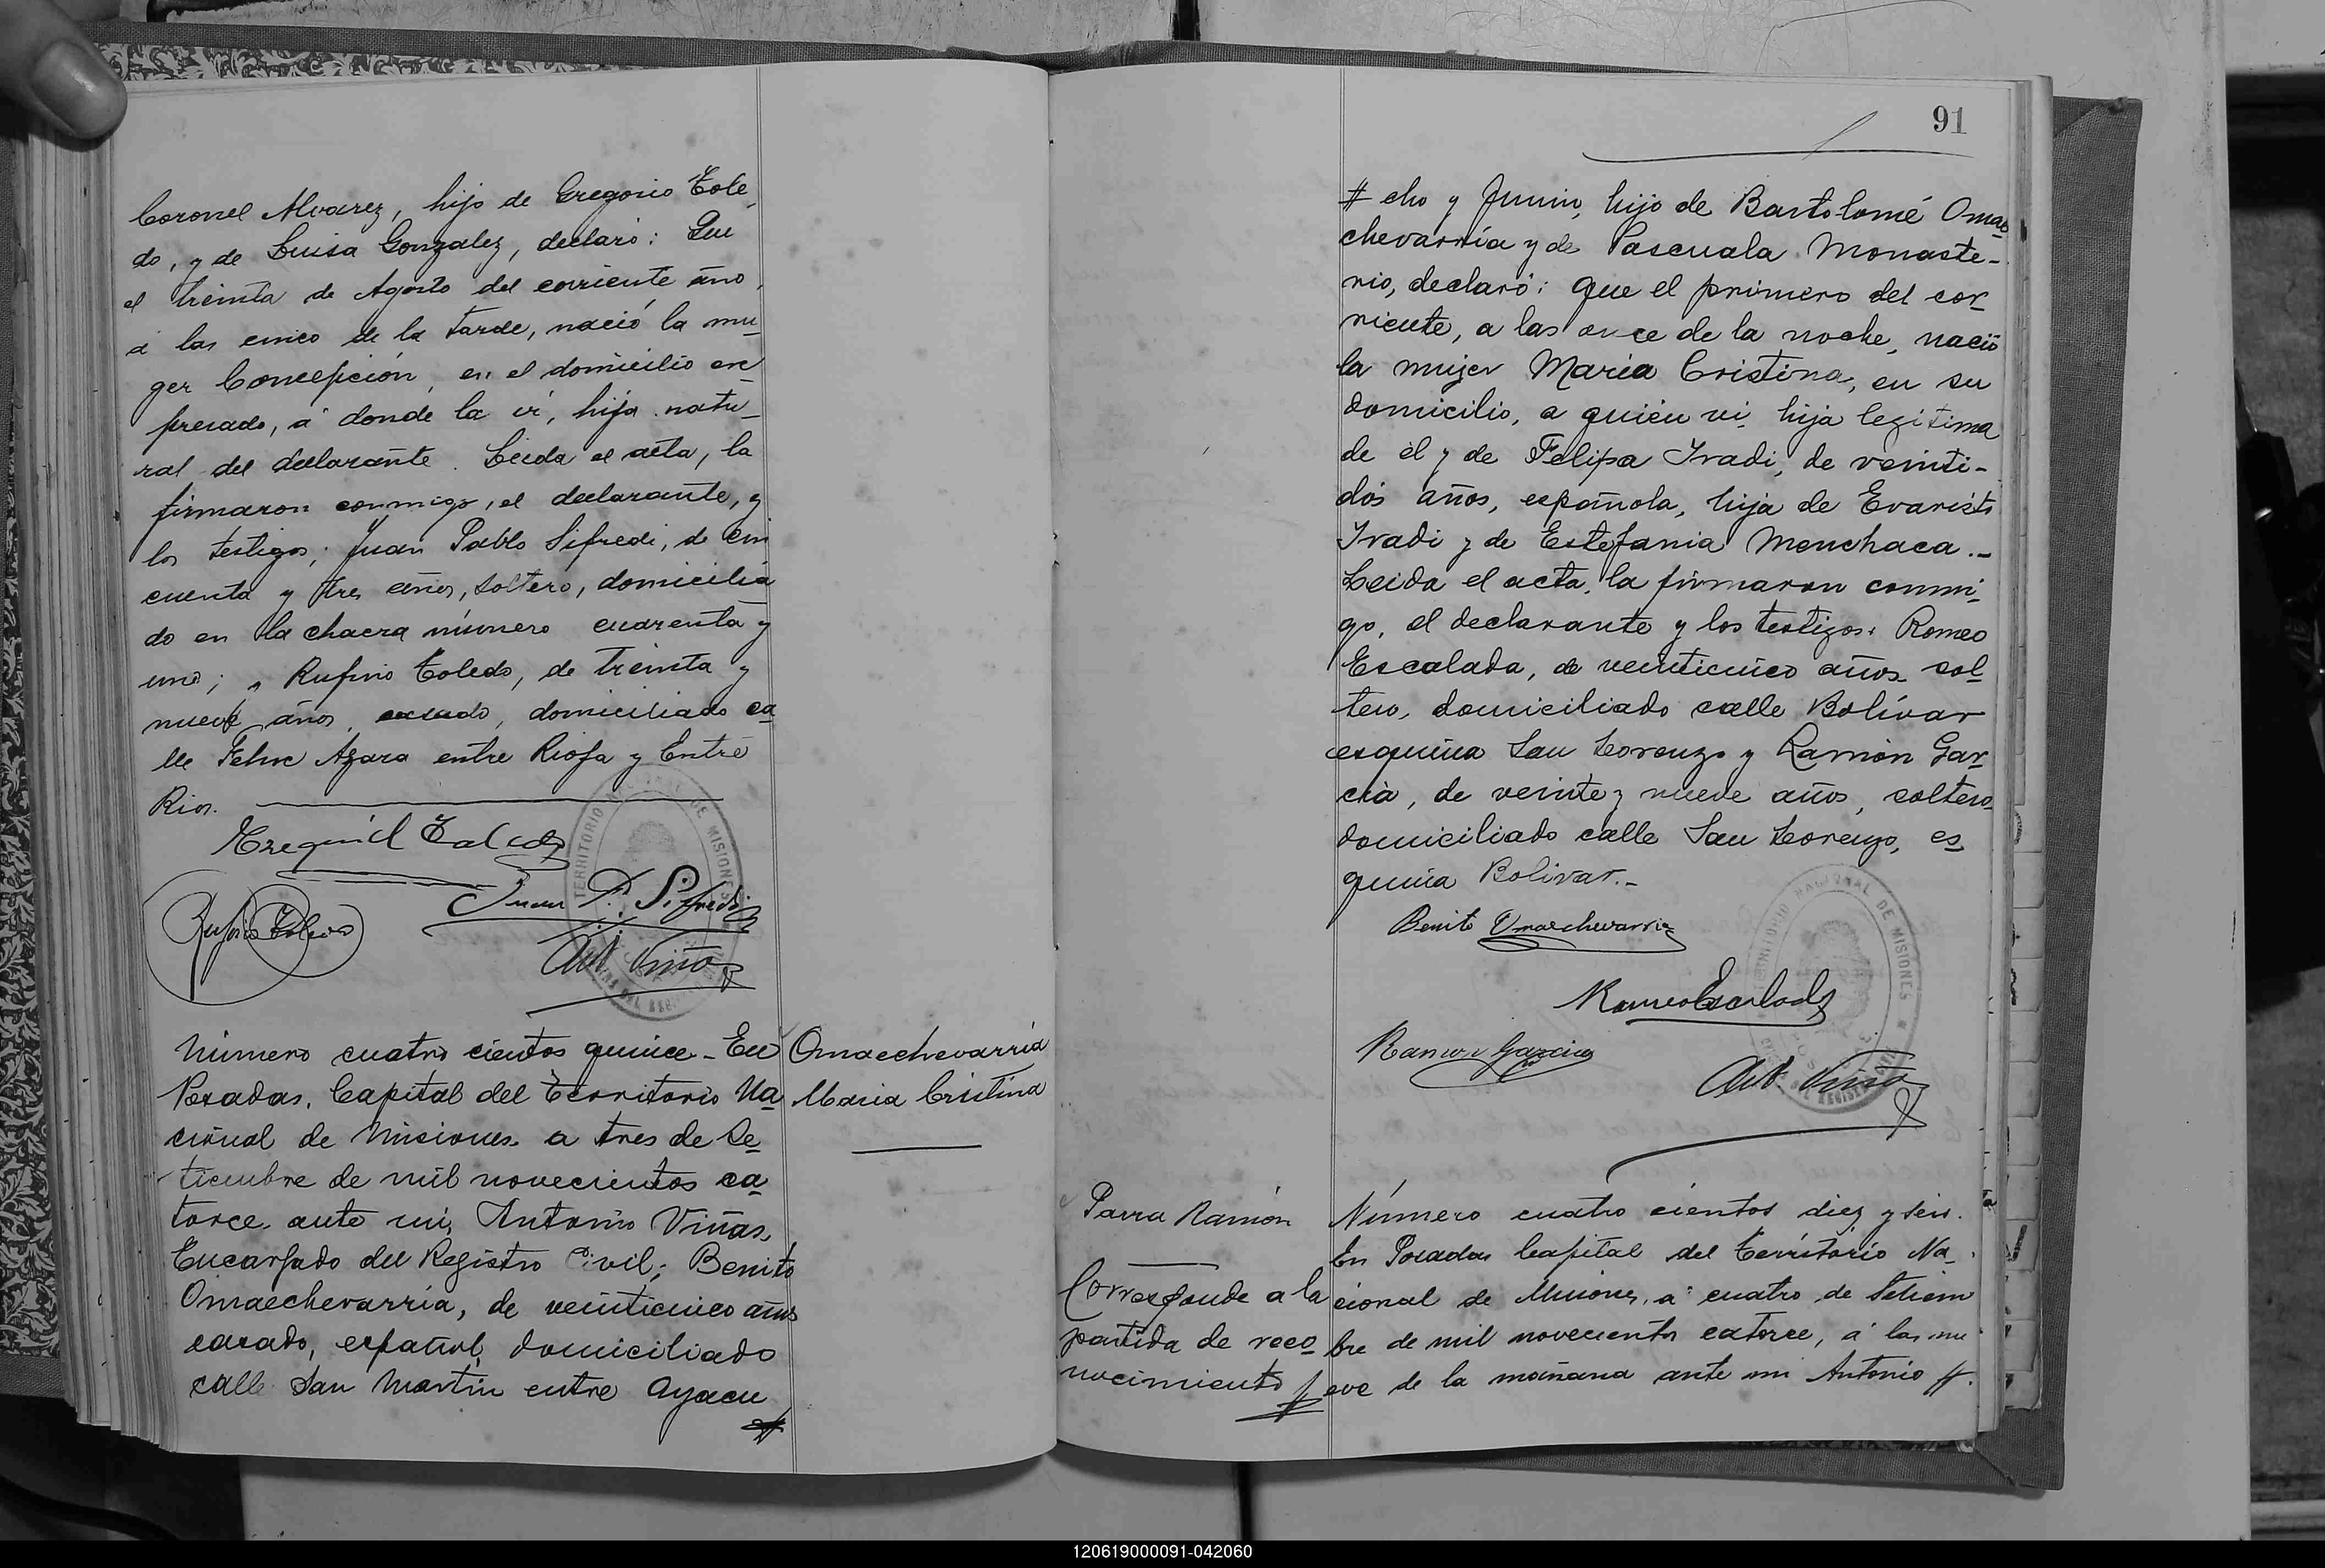 Coronel Alvarez, hijo de Gregorio Tole
do, y de Luisa Gonzalez, declaró: Que
el treinta de Agosto del corriente año,
á las cinco de la tarde, nació la mu
ger Concepción, en el domicilio ex
presado, á donde la ví, hija natu
ral del declarante. Leida el acta, la
firmaron conmigo, el declarante, y
los testigos; Juan Pablo Sifredi, de cin
cuenta y tres años, soltero, domicilia
do en la chacra número cuarenta y
uno; y Rufino Toledo, de treinta y
nueve años, casado, domiciliado ca
lle Felix Azara entre Rioja y Entre
Rios.
Ezequiel Toledo
Juan P. Sifredi
Rufino Toledo
Ant. Viñas
TERRITORIO NACIONAL DE MISIONES
Número cuatro cientos quince - En
Posadas, Capital del Territorio Na
cional de Misiones a tres de Se
tiembre de mil novecientos ca
torce, ante mi, Antonio Viñas,
Encargado del Registro Civil; Benito
Omaechevarria, de veinticinco años
casado, español, domiciliado
calle San Martin entre Ayacu
#
Omaechevarria
Maria Cristina
91
# cho y Junin, hijo de Bartolomé Omae
chevarría y de Pascuala Monaste-
rio, declaró: que el primero del cor
riente, a las once de la noche, nació
la mujer Maria Cristina, en su
domicilio, a quien vi, hija legitima
de él y de Felipa Iradi, de veinti-
dós años, española, hija de Evaristo
Iradi y de Estefania Menchaca.-
Leida el acta, la firmaron conmi
go, el declarante y los testigos: Romeo
Escalada, de veinticinco años sol
tero, domiciliado calle Bolívar
esquina San Lorenzo y Ramón Gar
cia, de veinte y nueve años, soltero
domiciliado calle San Lorenzo, es
quina Bolivar.-
Benito Omaechevarria
Romeo Escalada
Ramon Garcia
Ant. Viñas
TERRITORIO NACIONAL DE MISIONES
Parra Ramón
Corresponde a la
partida de reco
nocimiento #
Número cuatro cientos diez y seis.
En Posadas Capital del Territorio Na
cional de Misiones, a cuatro de Setiem
bre de mil novecientos catorce, á las nu
eve de la mañana ante mi Antonio #.
120619000091-042060